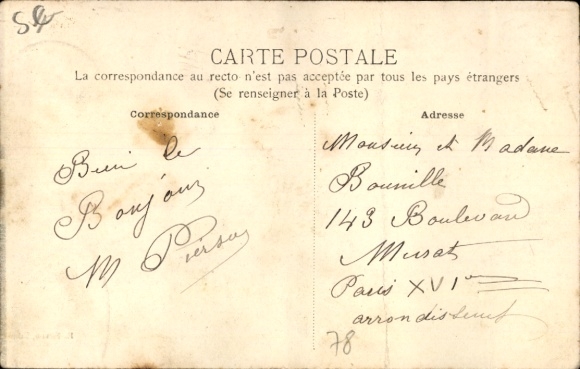 CARTE POSTALE
La correspondance au recto n'est pas acceptée par tous les pays étrangers
(Se renseigner à la Poste)
Correspondance
Bien le
Bonjour
M Pierson
Adresse
Monsieur et Madame
Bounille
143 Boulevard
Murat
Paris XVIe
arrondissement
78